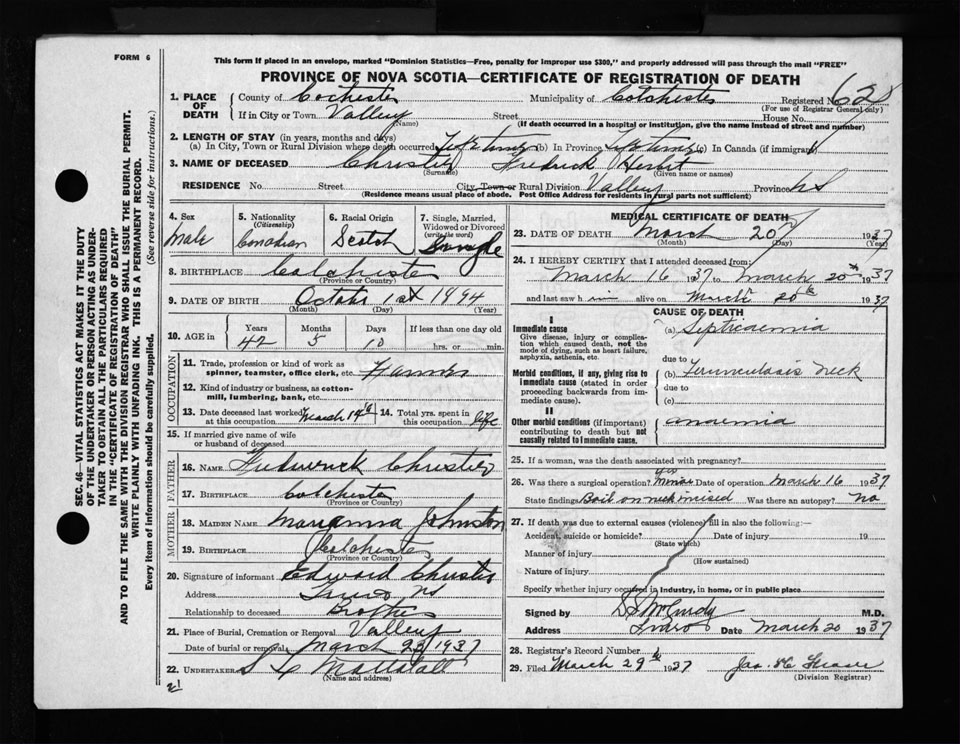 FORM 6
This form if placed in an envelope, marked "Dominion Statistics—Free, penalty for improper use $300," and properly addressed will pass through the mail "FREE"
PROVINCE OF NOVA SCOTIA—CERTIFICATE OF REGISTRATION OF DEATH
1. PLACE OF DEATH
County of Colchester Municipality of Colchester Registered No. 628
(For use of Registrar General only)
If in City or Town Valley Street House No.
(Name) (If death occurred in a hospital or institution, give the name instead of street and number)
2. LENGTH OF STAY (in years, months and days)
(a) In City, Town or Rural Division where death occurred Life time (b) In Province Life time (c) In Canada (if immigrant)
3. NAME OF DECEASED Christie Fredrick Herbert
(Surname) (Given name or names)
RESIDENCE No. Street City, Town or Rural Division Valley Province N S
(Residence means usual place of abode. Post Office Address for residents in rural parts not sufficient)
4. Sex Male
5. Nationality (Citizenship) Canadian
6. Racial Origin Scotch
7. Single, Married, Widowed or Divorced (write the word) Single
8. BIRTHPLACE Colchester
(Province or Country)
9. DATE OF BIRTH October 1st 1894
(Month) (Day) (Year)
10. AGE in Years Months Days If less than one day old
42 5 10 hrs. or min.
OCCUPATION
11. Trade, profession or kind of work as spinner, teamster, office clerk, etc. Farmer
12. Kind of industry or business, as cotton-mill, lumbering, bank, etc.
13. Date deceased last worked at this occupation March 14th
14. Total yrs. spent in this occupation life
15. If married give name of wife or husband of deceased
FATHER
16. NAME Frederick Christie
17. BIRTHPLACE Colchester
(Province or Country)
MOTHER
18. MAIDEN NAME Marianna Johnston
19. BIRTHPLACE Colchester
(Province or Country)
20. Signature of informant Edward Christie
Address Truro NS
Relationship to deceased Brother
21. Place of Burial, Cremation or Removal Valley
Date of burial or removal March 22 1937
22. UNDERTAKER
(Name and address)
MEDICAL CERTIFICATE OF DEATH
23. DATE OF DEATH March 20 1937
(Month) (Day) (Year)
24. I HEREBY CERTIFY that I attended deceased from:
March 16 1937 to March 20th 1937
and last saw h im alive on March 20th 1937
CAUSE OF DEATH
I
Immediate cause
Give disease, injury or complication which caused death, not the mode of dying, such as heart failure, asphyxia, asthenia, etc.
(a) Septicaemia
due to
Morbid conditions, if any, giving rise to immediate cause (stated in order proceeding backwards from immediate cause).
(b) Furunculosis Neck
due to
(c)
II
Other morbid conditions (if important) contributing to death but not causally related to immediate cause.
anaemia
25. If a woman, was the death associated with pregnancy?
26. Was there a surgical operation? Yes Minor Date of operation March 16 1937
State findings Boil on neck incised Was there an autopsy? No
27. If death was due to external causes (violence) fill in also the following:—
Accident, suicide or homicide? Date of injury 19
(State which)
Manner of injury
(How sustained)
Nature of injury
Specify whether injury occurred in industry, in home, or in public place
Signed by D S McCurdy M.D.
Address Truro Date March 20 1937
28. Registrar's Record Number
29. Filed March 29th 1937
(Division Registrar)
SEC. 46—VITAL STATISTICS ACT MAKES IT THE DUTY
OF THE UNDERTAKER OR PERSON ACTING AS UNDER-
TAKER TO OBTAIN ALL THE PARTICULARS REQUIRED
IN THE "CERTIFICATE OF REGISTRATION OF DEATH"
AND TO FILE THE SAME WITH THE DIVISION REGISTRAR WHO SHALL ISSUE THE BURIAL PERMIT.
WRITE PLAINLY WITH UNFADING INK. THIS IS A PERMANENT RECORD.
Every item of information should be carefully supplied. (See reverse side for instructions.)